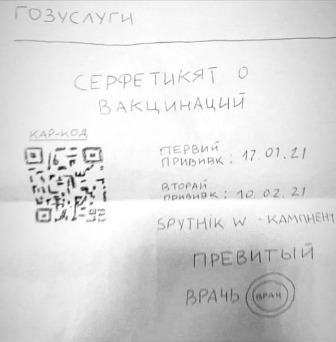 ГОЗУСЛУГИ
СЕРФЕТИКЯТ О
ВАКЦИНАЦИЙ
КАР-КОД
ПЕРВИЙ
ПРИВИВК : 17.01.21
ВТОРАЙ
ПРИВИВК : 10.02.21
SPYTHIK W - КАМПНЕНТ
ПРЕВИТЫЙ
ВРАЧЬ ВРАЧ